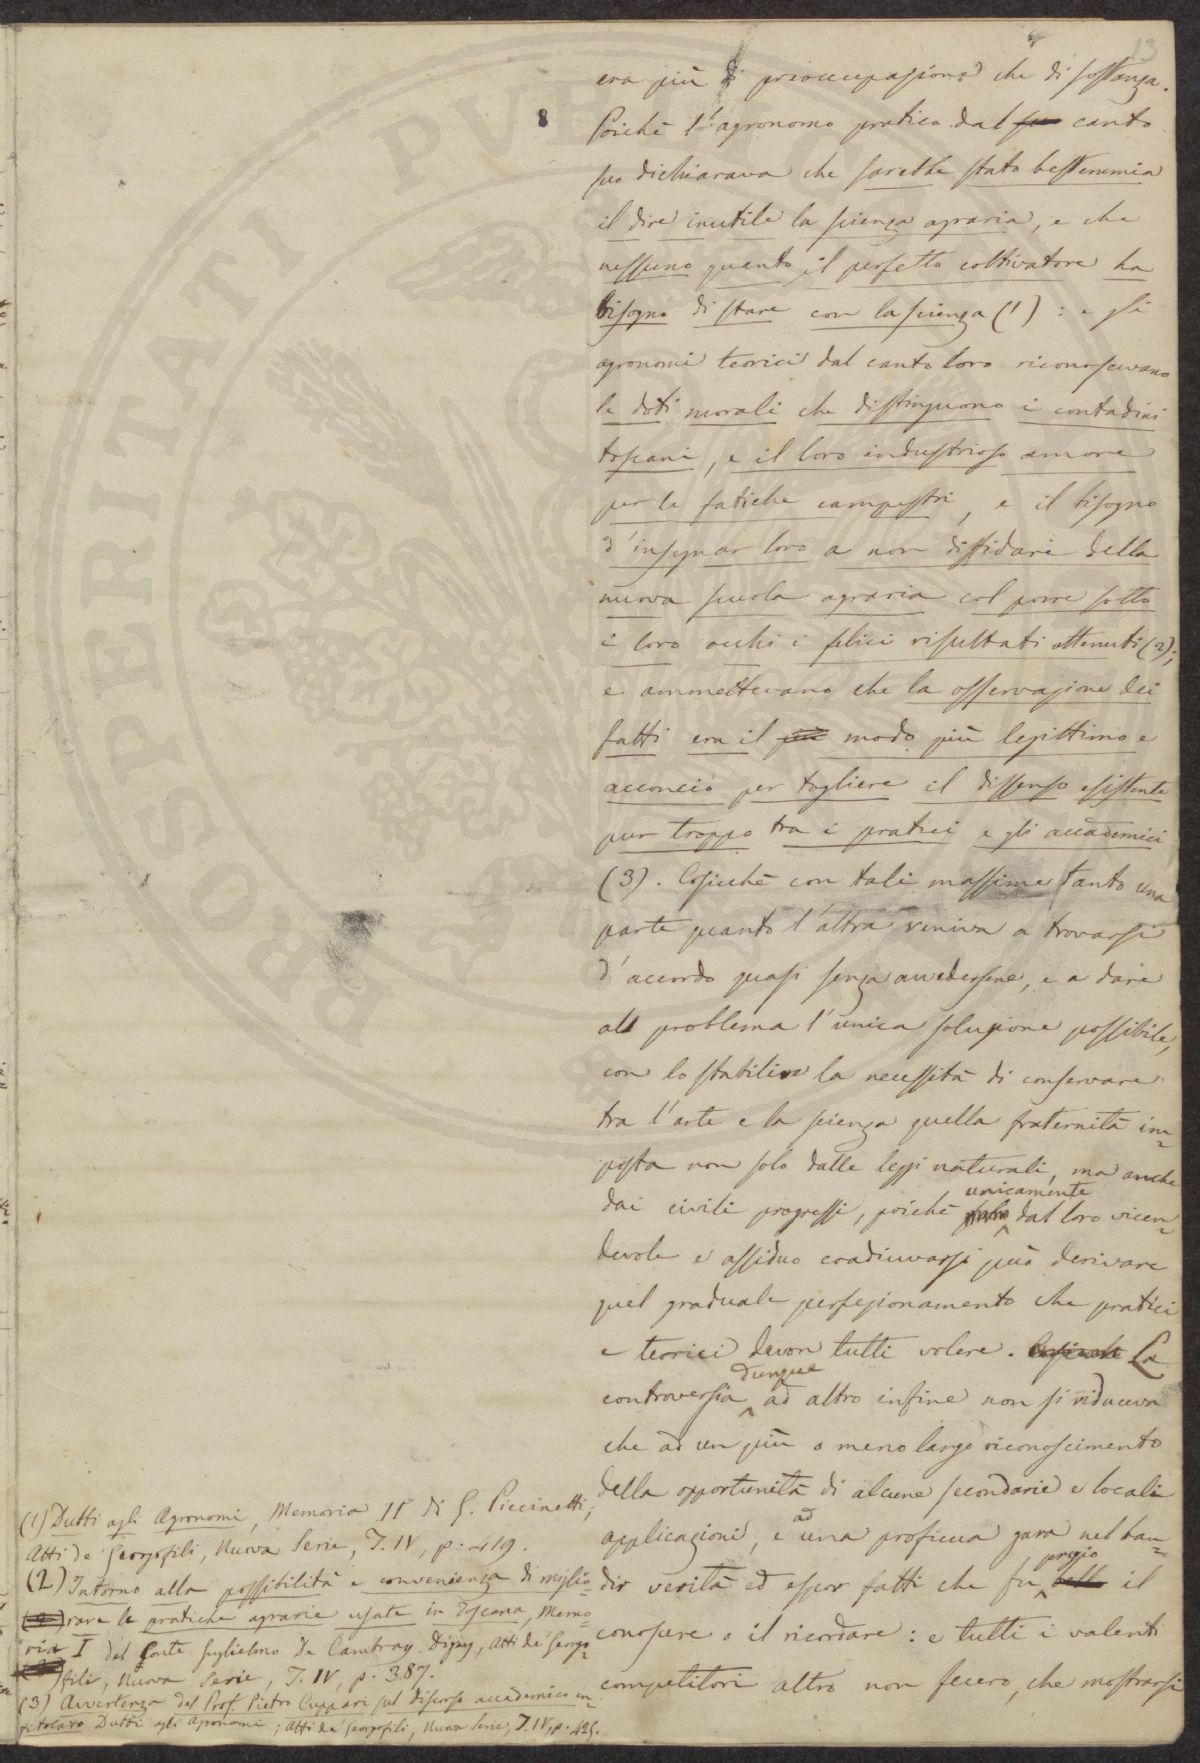 13
8
era più di preoccupazione che di sostanza.
Poichè l'agronomo pratico dal su canto
suo dichiarava che sarebbe stato bestemmia
il dire inutile la scienza agraria, e che
nessuno quanto il perfetto coltivatore ha
bisogno di stare con la scienza (1) : e gli
agronomi teorici dal canto loro riconoscevano
le doti morali che distinguono i contadini
toscani, e il loro industrioso amore
per le fatiche campestri, e il bisogno
d'insegnar loro a non diffidare della
nuova scuola agraria col porre sotto
i loro occhi i felici risultati ottenuti (2);
e ammettevano che la osservazione dei
fatti era il più modo più legittimo e
acconcio per togliere il dissenso esistente
pur troppo tra i pratici e gli accademici
(3). Cosicchè con tali massime tanto una
parte quanto l'altra veniva a trovarsi
d'accordo quasi senza avvedersene, e a dare
al problema l'unica soluzione possibile,
con lo stabilire la necessità di conservare
tra l'arte e la scienza quella fraternità im=
posta non solo dalle leggi naturali, ma anche
dai civili progressi, poichè unicamente dal loro vicen=
devole e assiduo coadiuvarsi può derivare
quel graduale perfezionamento che pratici
e teorici devon tutti volere. La
controversia dunque ad altro infine non si riduceva
che ad un più o meno largo riconoscimento
della opportunità di alcune secondarie e locali
applicazioni, e ad una proficua gara nel ban=
dir verità ed espor fatti che fu pregio il
conoscere o il ricordare : e tutti i valenti
competitori altro non fecero, che mostrarsi
(1) Dubbi agli Agronomi, Memoria II di G. Piccinetti;
Atti de' Georgofili, Nuova Serie, T. IV, p. 419.
(2) Intorno alla possibilità e convenienza di miglio=
rare le pratiche agrarie usate in Toscana, Memo=
ria I del Conte Guglielmo De Cambray Digny, Atti de' Georgo=
fili, Nuova Serie, T. IV, p. 387.
(3) Avvertenza del Prof. Pietro Cuppari sul discorso accademico in=
titolato Dubbi agli Agronomi; Atti de' Georgofili, Nuova Serie, T. IV, p. 425.
PROSPERITATI PVBLICAE